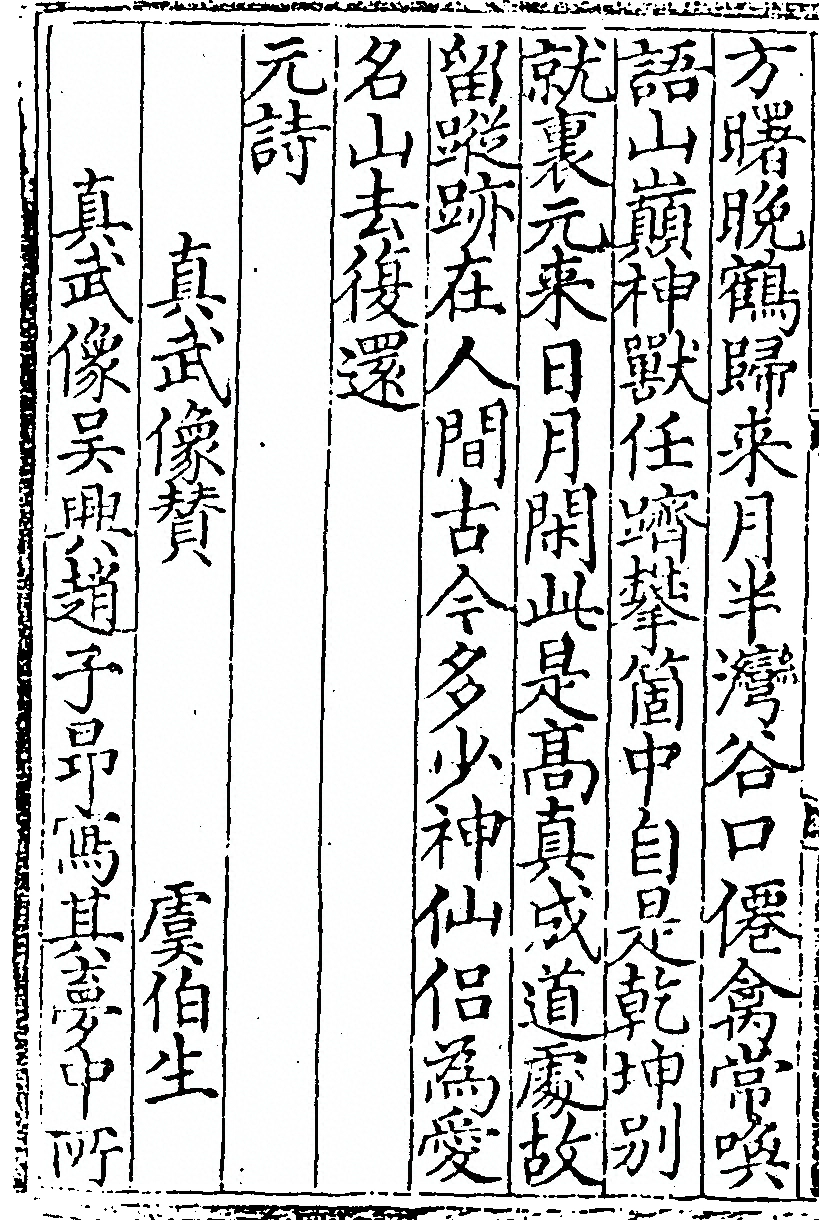 方曙晚鶴歸来月半灣谷口僊禽常喚
語山巔神獸任躋攀箇中自是乾坤别
就裏元来日月閑此是髙真成道處故
留蹤跡在人間古今多少神仙侣為愛
名山去復還
元詩
真武像賛 虞伯生
真武像吴興趙子昂寫其夢中所